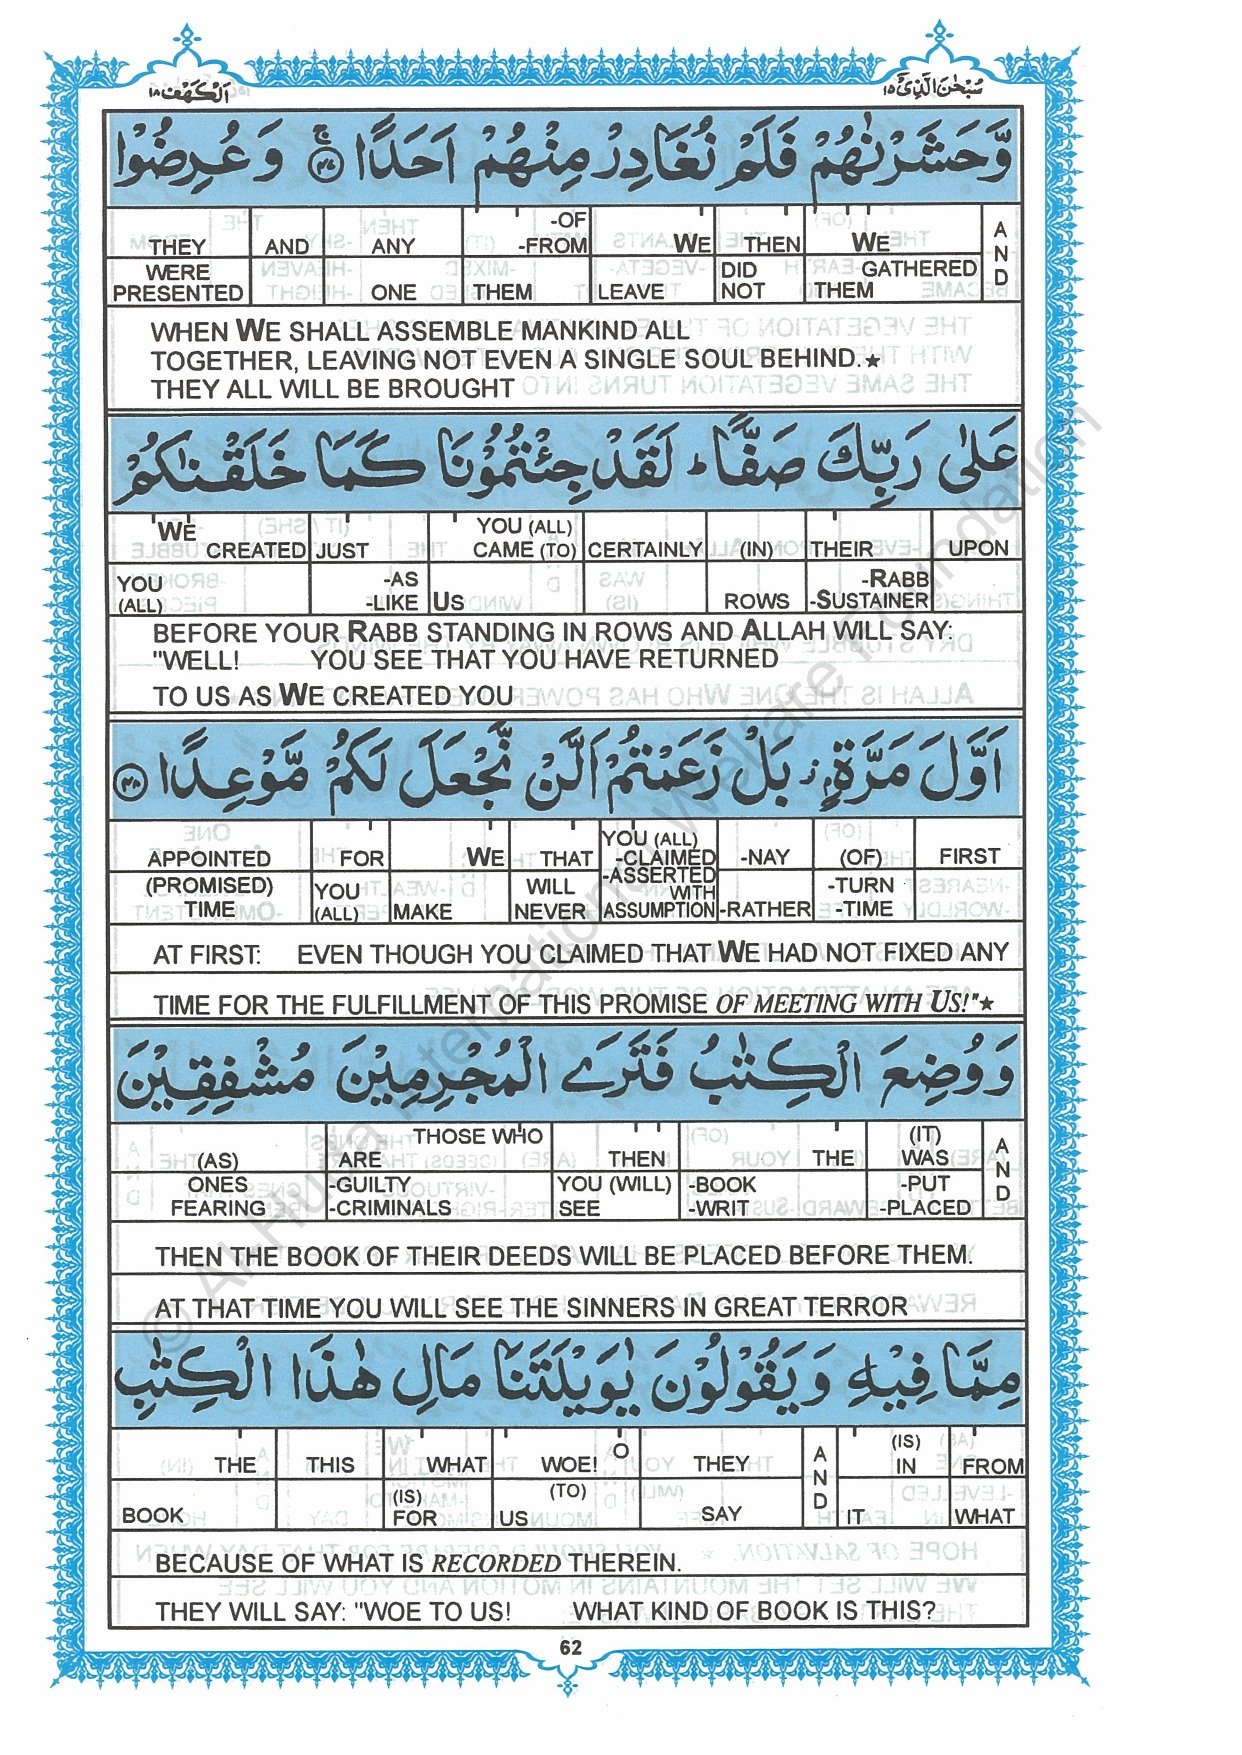 اَلْكَهْف ١٨
سُبْحٰنَ الَّذِیْۤ ١٥
وَّحَشَرْنٰهُمْ فَلَمْ نُغَادِرْ مِنْهُمْ اَحَدًا ۚ ﴿٤٧﴾ وَعُرِضُوْا
THEY AND ANY -OF -FROM WE THEN WE AND
WERE PRESENTED ONE THEM LEAVE DID NOT GATHERED THEM
WHEN WE SHALL ASSEMBLE MANKIND ALL
TOGETHER, LEAVING NOT EVEN A SINGLE SOUL BEHIND.★
THEY ALL WILL BE BROUGHT
عَلٰی رَبِّكَ صَفًّا ؕ لَقَدْ جِئْتُمُوْنَا كَمَا خَلَقْنٰكُمْ
WE CREATED JUST YOU (ALL) CAME (TO) CERTAINLY (IN) THEIR UPON
YOU (ALL) -AS -LIKE US ROWS -RABB -SUSTAINER
BEFORE YOUR RABB STANDING IN ROWS AND ALLAH WILL SAY:
"WELL! YOU SEE THAT YOU HAVE RETURNED
TO US AS WE CREATED YOU
اَوَّلَ مَرَّةٍۭ ز بَلْ زَعَمْتُمْ اَلَّنْ نَّجْعَلَ لَكُمْ مَّوْعِدًا ﴿٤٨﴾
APPOINTED FOR WE THAT YOU (ALL) -CLAIMED -NAY (OF) FIRST
(PROMISED) TIME YOU (ALL) MAKE WILL NEVER -ASSERTED WITH ASSUMPTION -RATHER -TURN -TIME
AT FIRST: EVEN THOUGH YOU CLAIMED THAT WE HAD NOT FIXED ANY
TIME FOR THE FULFILLMENT OF THIS PROMISE OF MEETING WITH US!"★
وَوُضِعَ الْكِتٰبُ فَتَرَی الْمُجْرِمِیْنَ مُشْفِقِیْنَ
(AS) THOSE WHO ARE THEN THE (IT) WAS AND
ONES FEARING -GUILTY -CRIMINALS YOU (WILL) SEE -BOOK -WRIT -PUT -PLACED
THEN THE BOOK OF THEIR DEEDS WILL BE PLACED BEFORE THEM.
AT THAT TIME YOU WILL SEE THE SINNERS IN GREAT TERROR
مِمَّا فِیْهِ وَیَقُوْلُوْنَ یٰوَیْلَتَنَا مَالِ هٰذَا الْكِتٰبِ
THE THIS WHAT O WOE! THEY AND (IS) IN FROM
BOOK (IS) FOR (TO) US SAY IT WHAT
BECAUSE OF WHAT IS RECORDED THEREIN.
THEY WILL SAY: "WOE TO US! WHAT KIND OF BOOK IS THIS?
62
© Al-Huda International Welfare Foundation